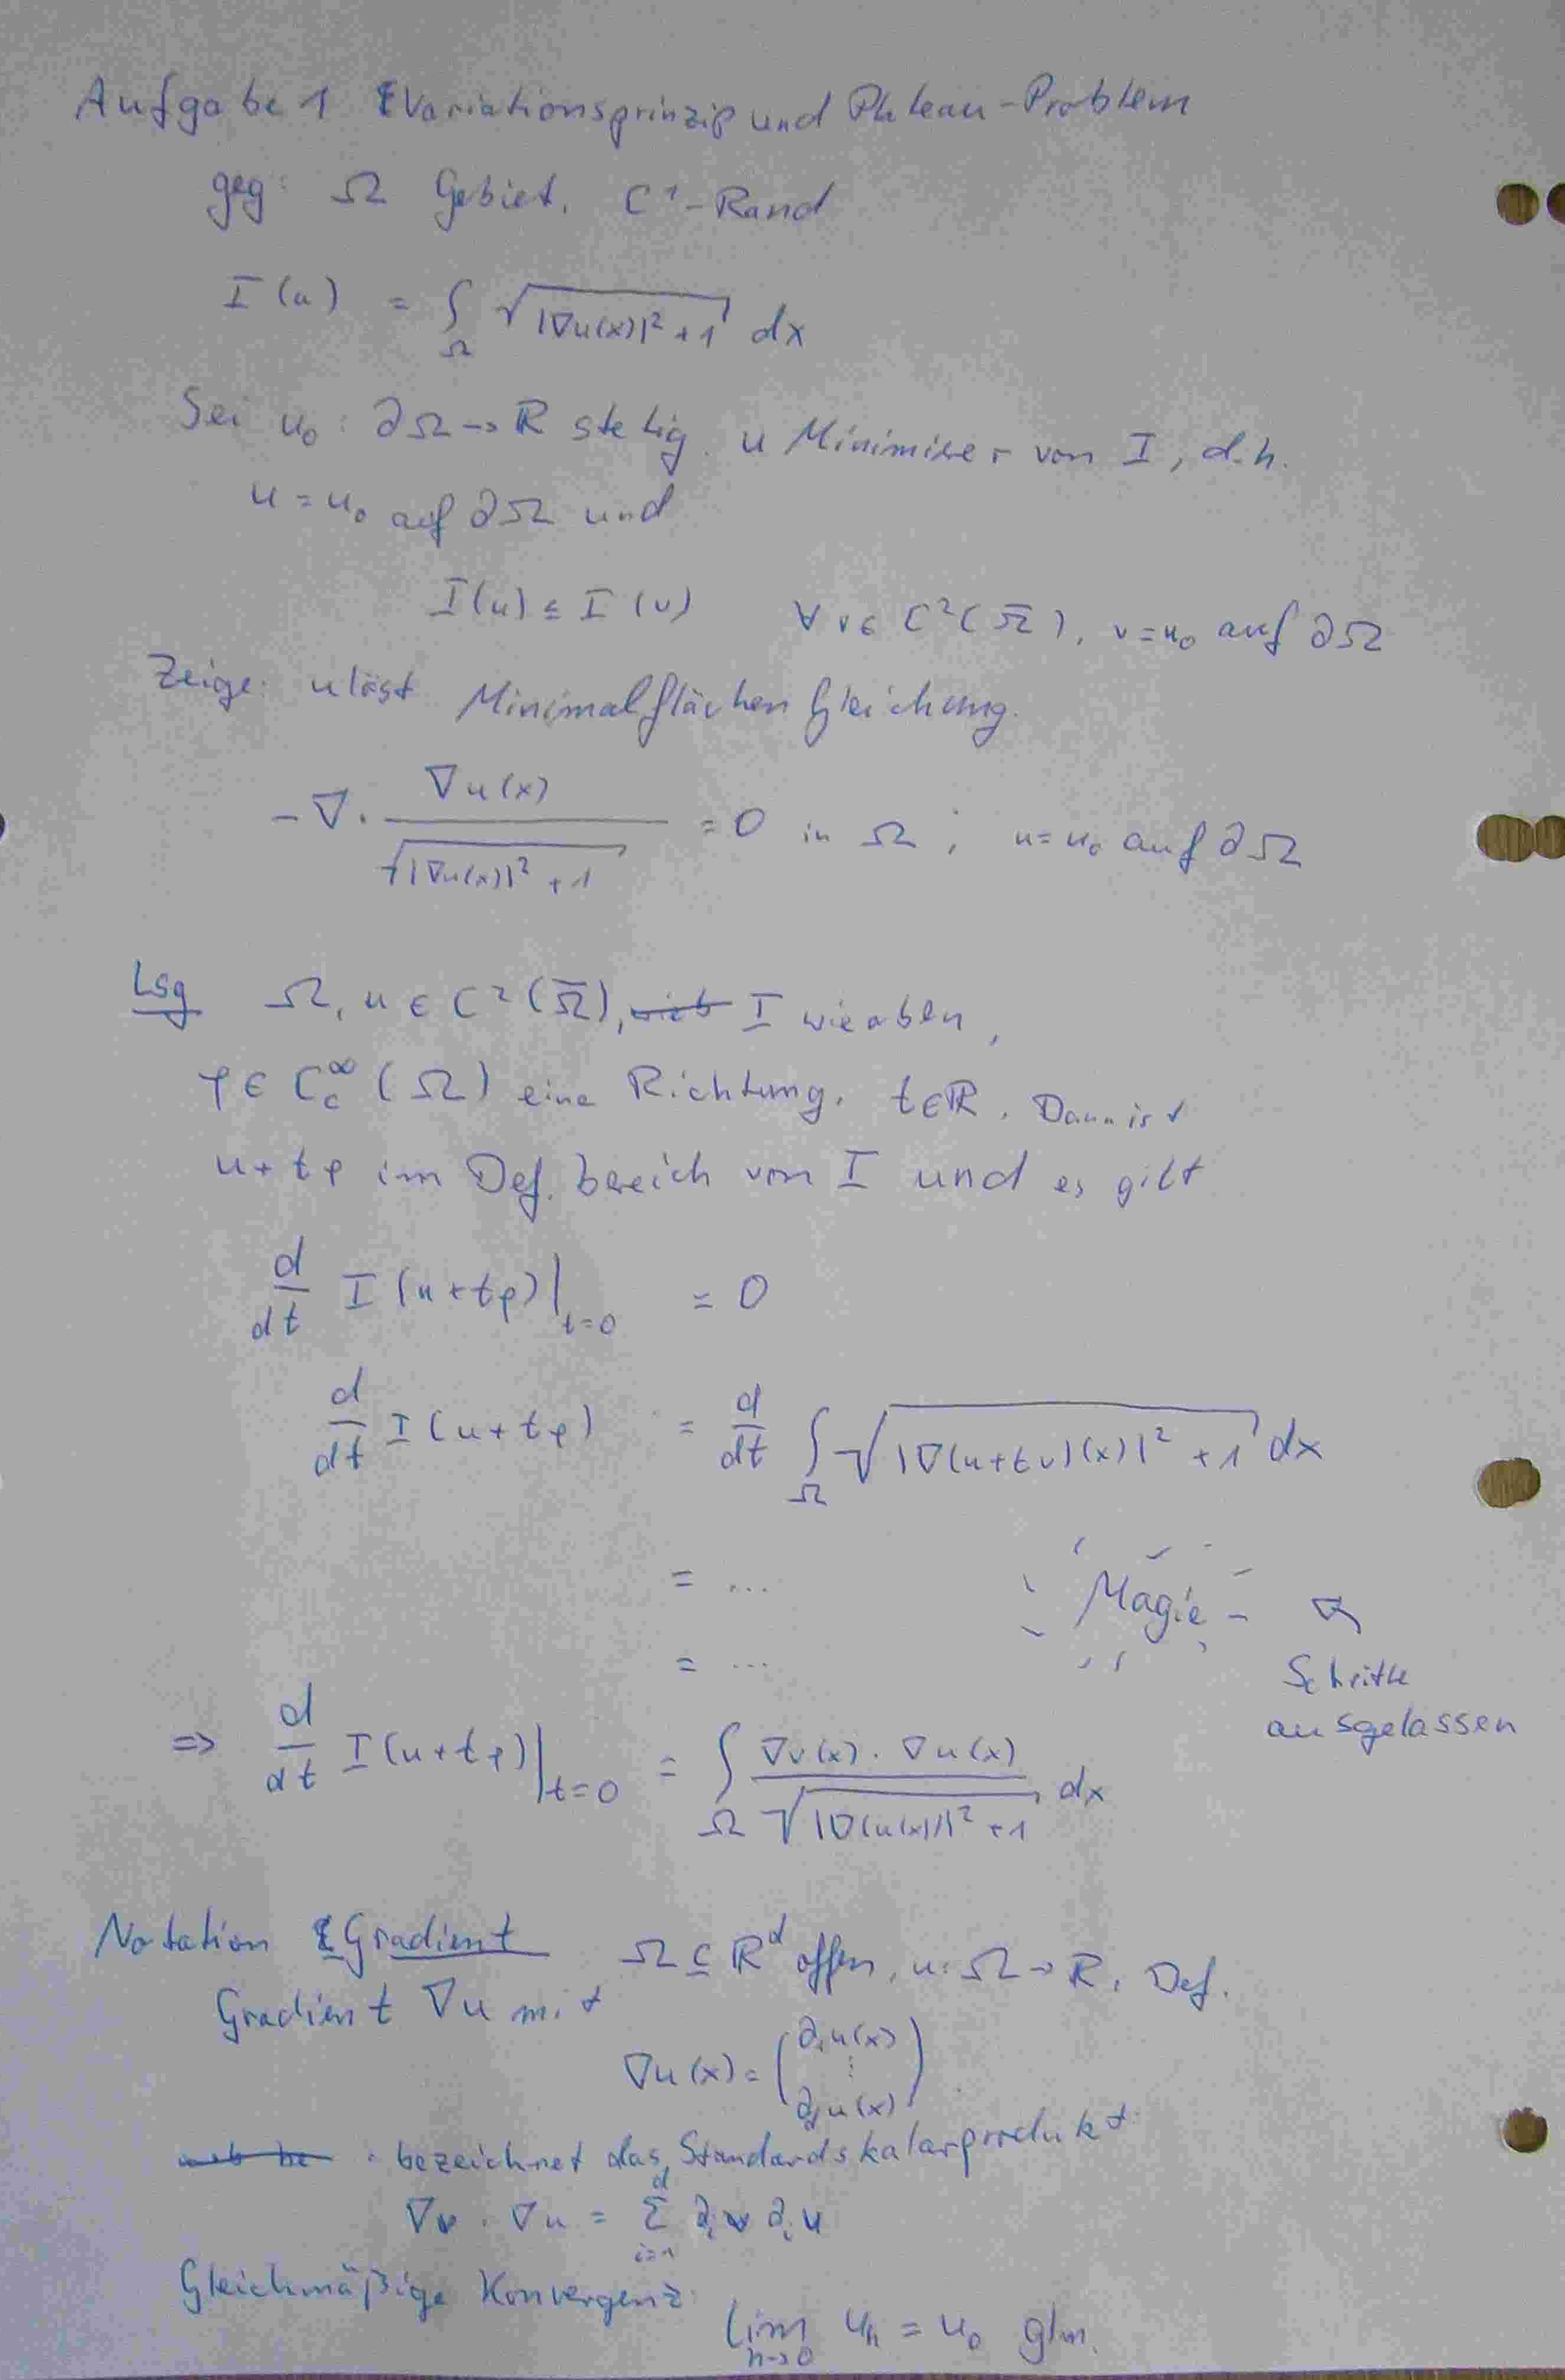 Aufgabe 1 Variationsprinzip und Plateau-Problem
geg: Ω Gebiet, C¹-Rand
I(u) = ∫_Ω √(|∇u(x)|² + 1) dx
Sei u₀: ∂Ω → ℝ stetig. u Minimierer von I, d.h.
u = u₀ auf ∂Ω und
I(u) ≤ I(v) ∀ v ∈ C²(Ω̅), v = u₀ auf ∂Ω
Zeige: u löst Minimalflächen Gleichung.
-∇ · ∇u(x) / √(|∇u(x)|² + 1) = 0 in Ω, u = u₀ auf ∂Ω
Lsg Ω, u ∈ C²(Ω̅), I wie oben,
φ ∈ C_c^∞(Ω) eine Richtung, t ∈ ℝ. Dann ist
u + tφ im Def.bereich von I und es gilt
d/dt I(u + tφ)|_{t=0} = 0
d/dt I(u + tφ) = d/dt ∫_Ω √(|∇(u + tv)(x)|² + 1) dx
= ... Magie
= ... Schritte
ausgelassen
⇒ d/dt I(u + tφ)|_{t=0} = ∫_Ω ∇v(x) · ∇u(x) / √(|∇(u(x))|² + 1) dx
Notation Gradient Ω ⊆ ℝ^d offen, u: Ω → ℝ, Def.
Gradient ∇u mit
∇u(x) = (∂₁u(x) ⋮ ∂_d u(x))
· bezeichnet das Standardskalarprodukt
∇v · ∇u = Σ_{i=1}^d ∂_i v ∂_i u
Gleichmäßige Konvergenz: lim_{h→0} u_h = u₀ glm.